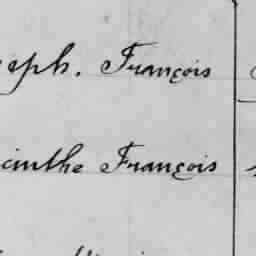 eph. François
cinthe François